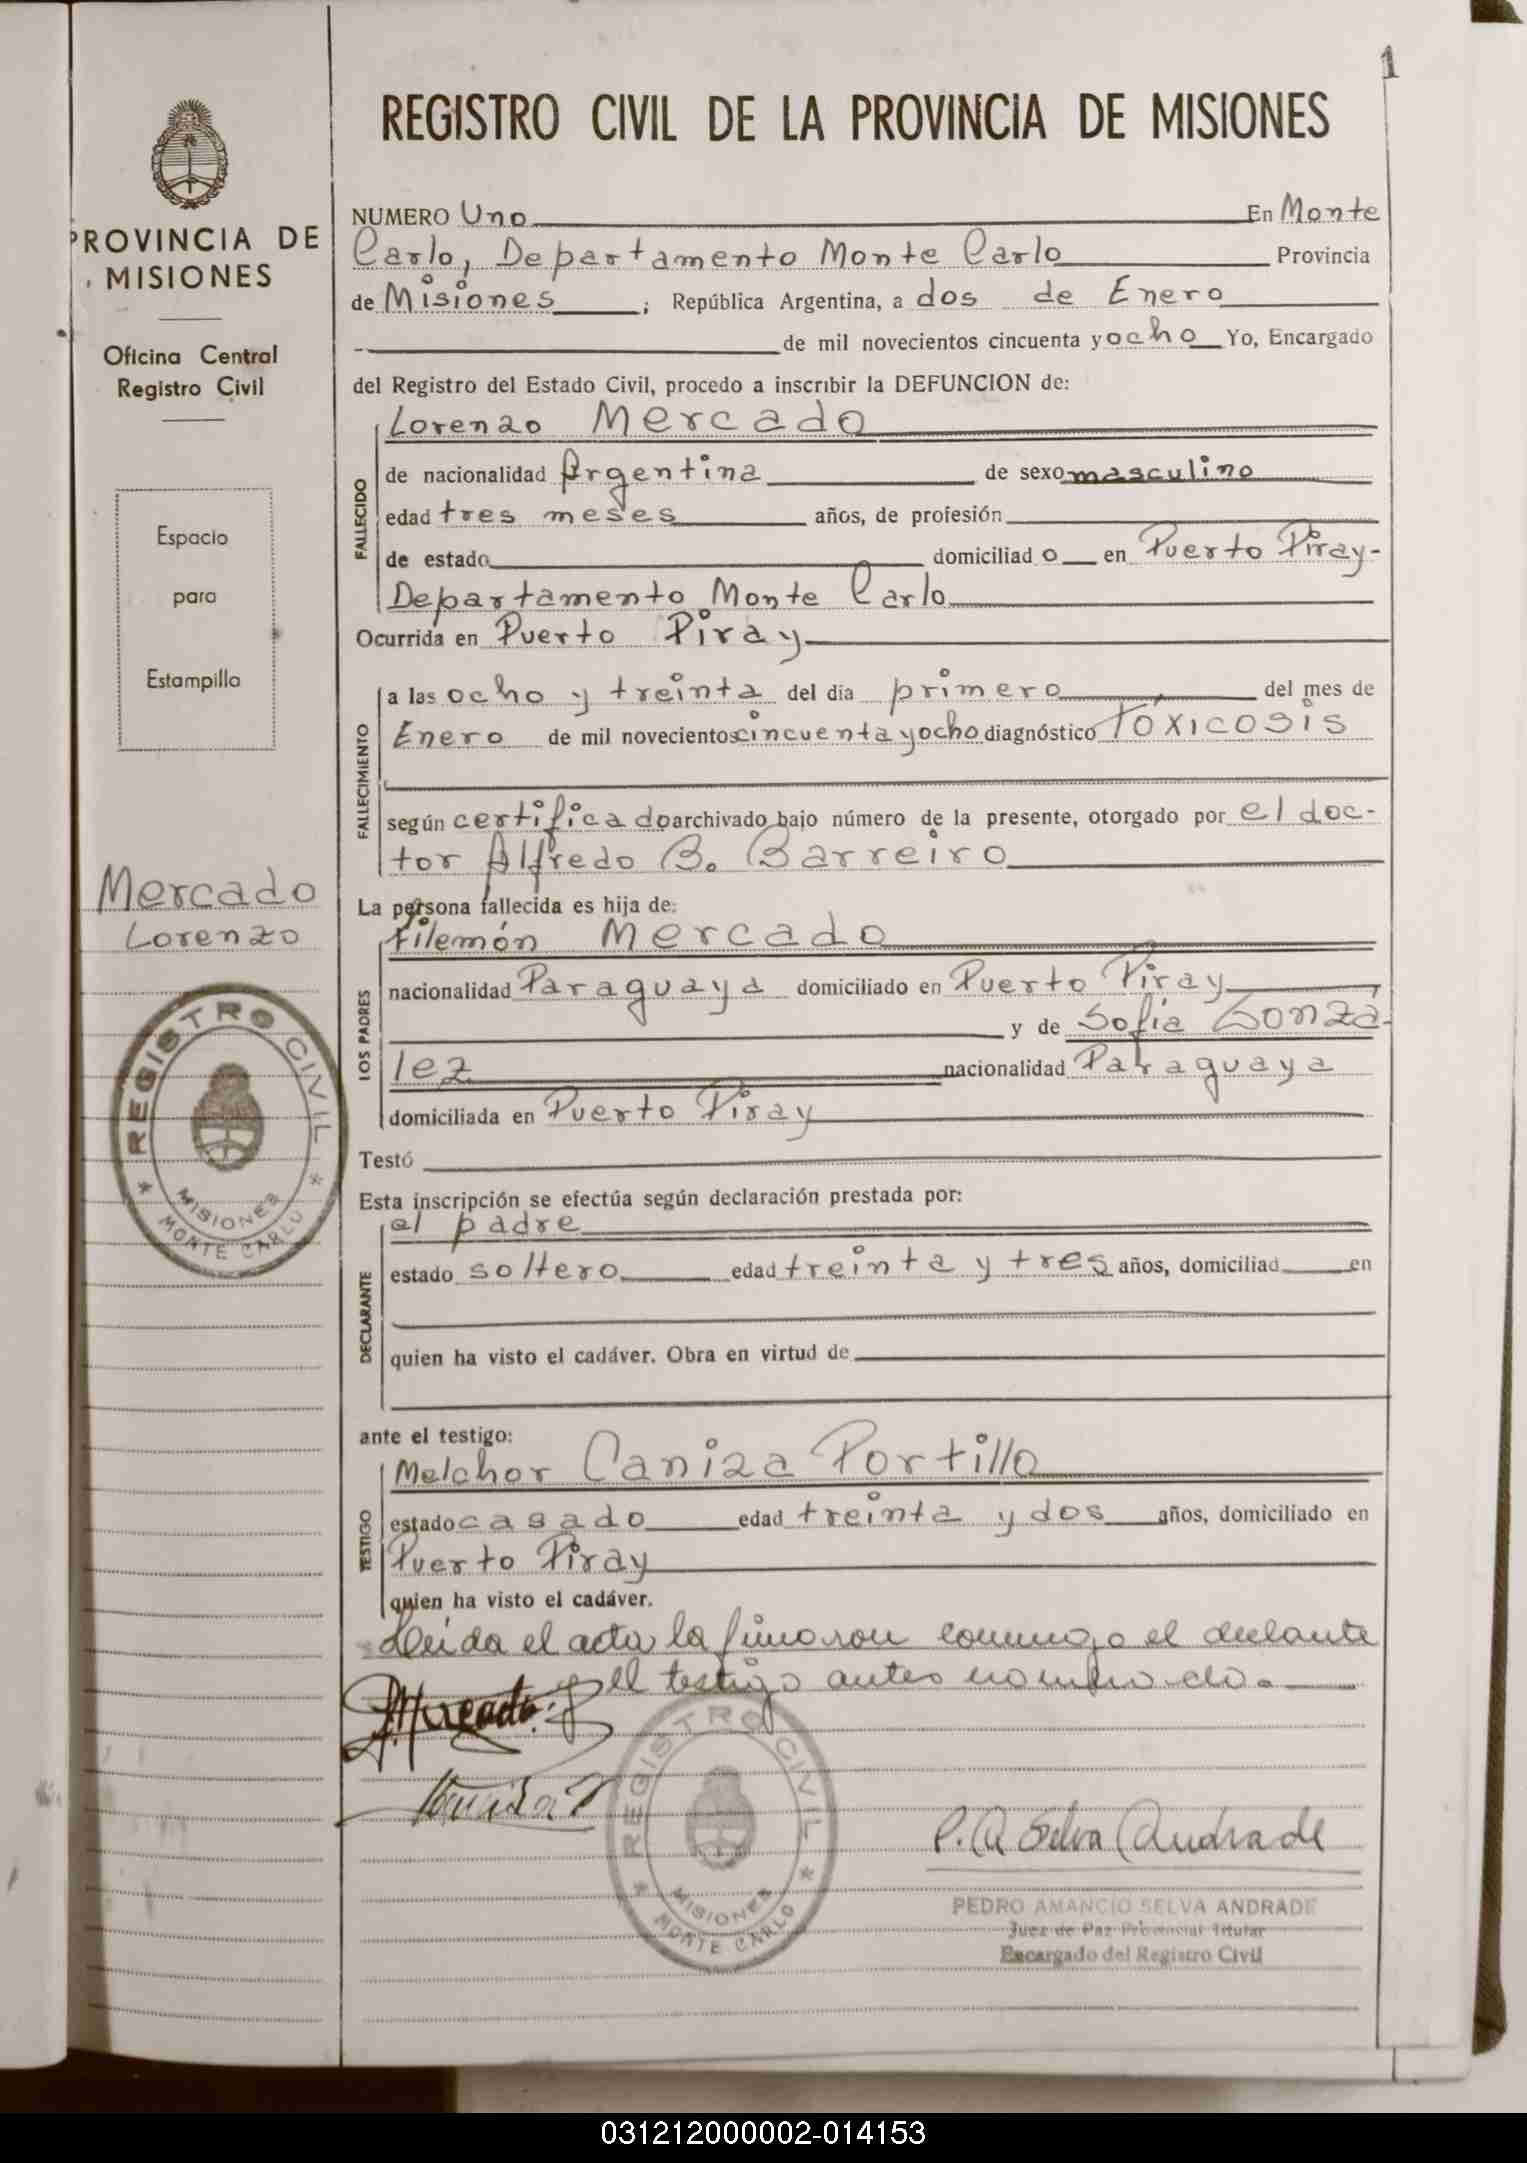 1
REGISTRO CIVIL DE LA PROVINCIA DE MISIONES
PROVINCIA DE
MISIONES
Oficina Central
Registro Civil
Espacio
para
Estampilla
Mercado
Lorenzo
REGISTRO CIVIL
MISIONES
MONTE CARLO
NUMERO Uno En Monte
Carlo, Departamento Monte Carlo Provincia
de Misiones ; República Argentina, a dos de Enero
de mil novecientos cincuenta y ocho Yo, Encargado
del Registro del Estado Civil, procedo a inscribir la DEFUNCION de:
FALLECIDO
Lorenzo Mercado
de nacionalidad Argentina de sexo masculino
edad tres meses años, de profesión
de estado domiciliad o en Puerto Piray-
Departamento Monte Carlo
Ocurrida en Puerto Piray
FALLECIMIENTO
a las ocho y treinta del día primero del mes de
Enero de mil novecientos cincuenta y ocho diagnóstico Tóxicosis
según certificado archivado bajo número de la presente, otorgado por el doc-
tor Alfredo B. Barreiro
La persona fallecida es hija de:
LOS PADRES
Filemón Mercado
nacionalidad Paraguaya domiciliado en Puerto Piray
y de Sofía Gonzá-
lez nacionalidad Paraguaya
domiciliada en Puerto Piray
Testó
Esta inscripción se efectúa según declaración prestada por:
DECLARANTE
el padre
estado soltero edad treinta y tres años, domiciliad en
quien ha visto el cadáver. Obra en virtud de
ante el testigo:
TESTIGO
Melchor Caniza Portillo
estado casado edad treinta y dos años, domiciliado en
Puerto Piray
quien ha visto el cadáver.
Leída el acta la firmaron conmigo el declarante
y el testigo antes nombrado.-
F. Mercado
Caniza P
REGISTRO CIVIL
MISIONES
MONTE CARLO
P. A Selva Andrade
PEDRO AMANCIO SELVA ANDRADE
Juez de Paz Provincial Titular
Encargado del Registro Civil
031212000002-014153